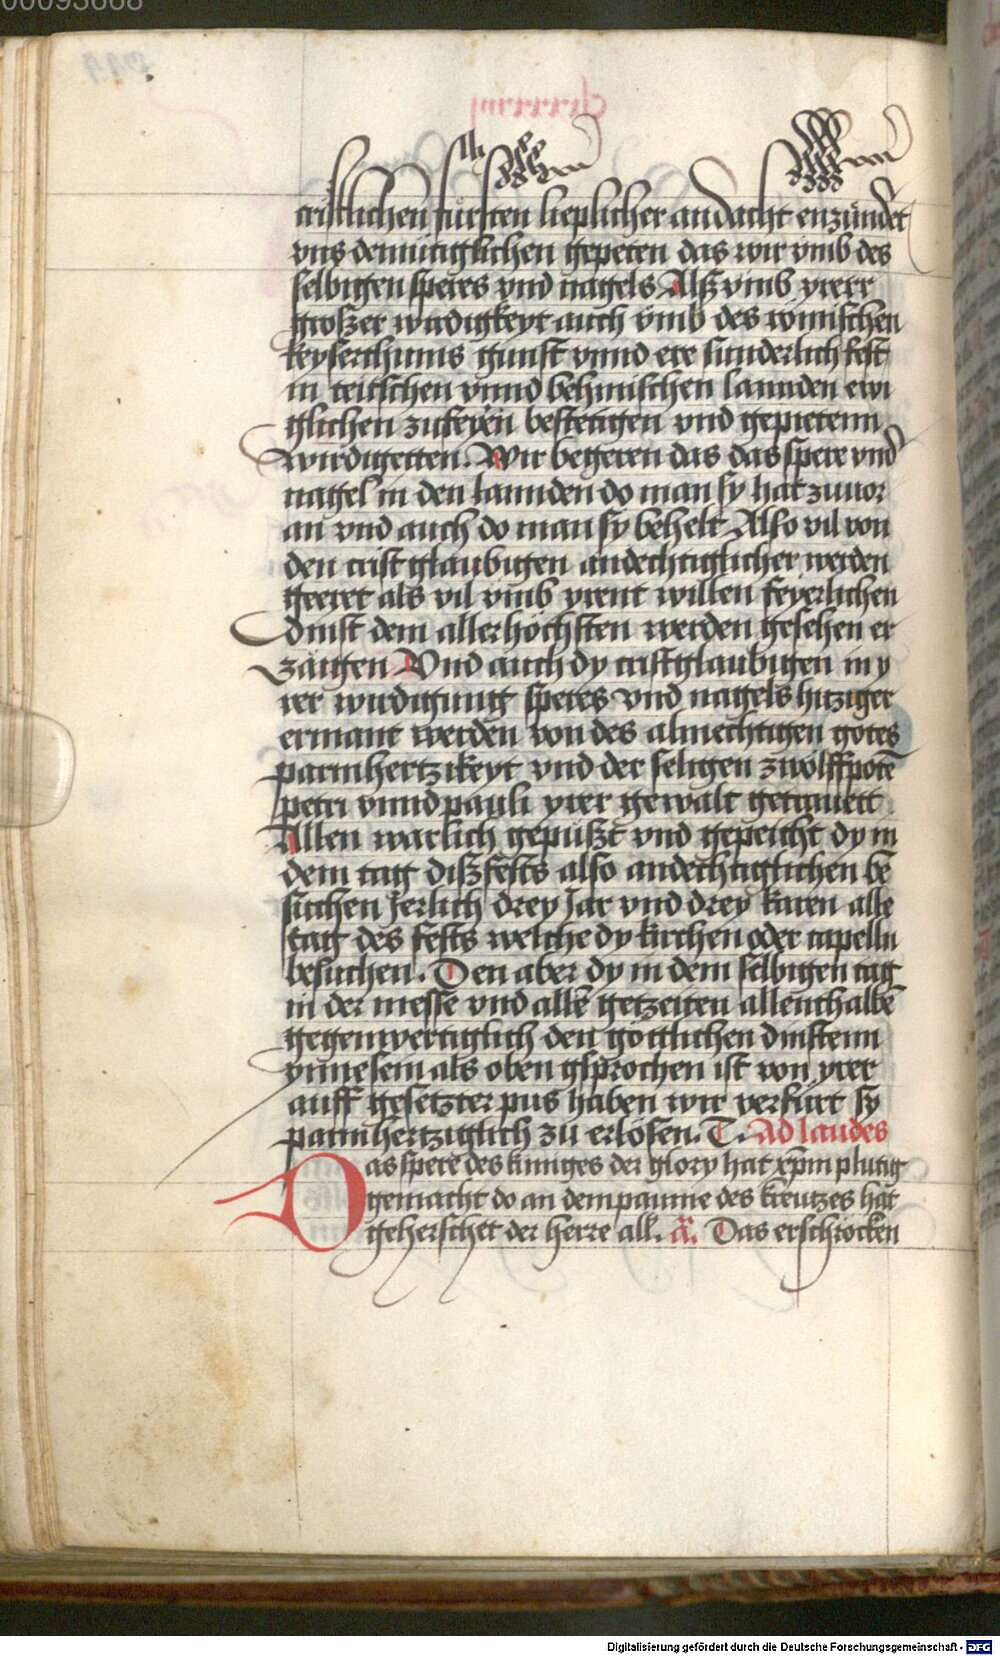 cristlichen fursten lieplicher andacht enzundet
vns demutiglichen gepeten das wir vmb des
selbigen speres vnd nagels Alsz vmb yrerr
groszer wirdigkeyt auch vmb des romischen
keyserthums gunst vnnd ere sunderlich fest
in teutschen vnnd behmischen lannden ewi
glichen zufeyen bestetigen vnd gepietenn
wirdigetten. Wir begeren das das spere vnd
nagel in den lannden do man sy hat zuuor
an vnd auch do man sy behelt Also vil von
den crist glaubigen andechtiglicher werden
geeret als vil vmb yrent willen feyerlichen
dinst dem allerhochsten werden gesehen er
zaigen Vnd auch dy cristglaubigen in y
rer wirdigung speres vnd nagels hitziger
ermant werden von des almechtigen gotes
parmhertzikeyt vnd der seligen zwolffpotē
petri vnnd pauli yrer gewalt getrauett
Allen warlich gepuszt vnd gepeicht dy in
dem tag disz fests also andechtiglichen be
suchen Jerlich drey Jar vnd drey karen alle
tag des fests welche dy kirchen oder capelln
besuchen. Den aber dy in dem selbigen tag
in der messe vnd allē getzeiten allenthalbē
gegenwertiglich den gottlichen dinstenn
ynne sein als oben gsprochen ist von yrer
auff gesetzter pus haben wir verfurt sy
parmhertziglich zu erlosen. T. Ad laudes
Das spere des kuniges der glory hat xp̄m plutig
gemacht do an dem paume des kreutzes hat
geherschet der herre all. a. Das erschrocken
Digitalisierung gefördert durch die Deutsche Forschungsgemeinschaft - DFG